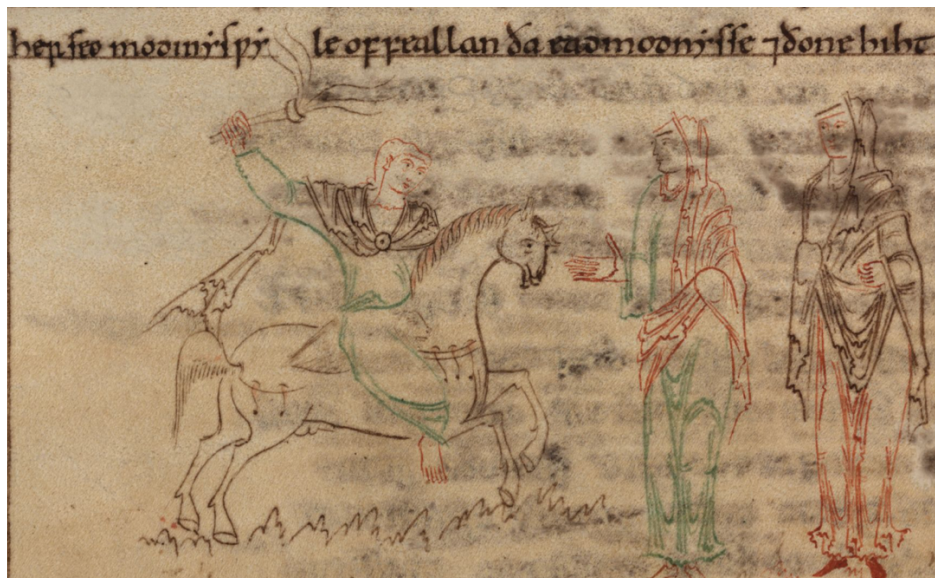 her seo modinys ƿyle offeallan ða eadmodnysse ⁊ done hiht